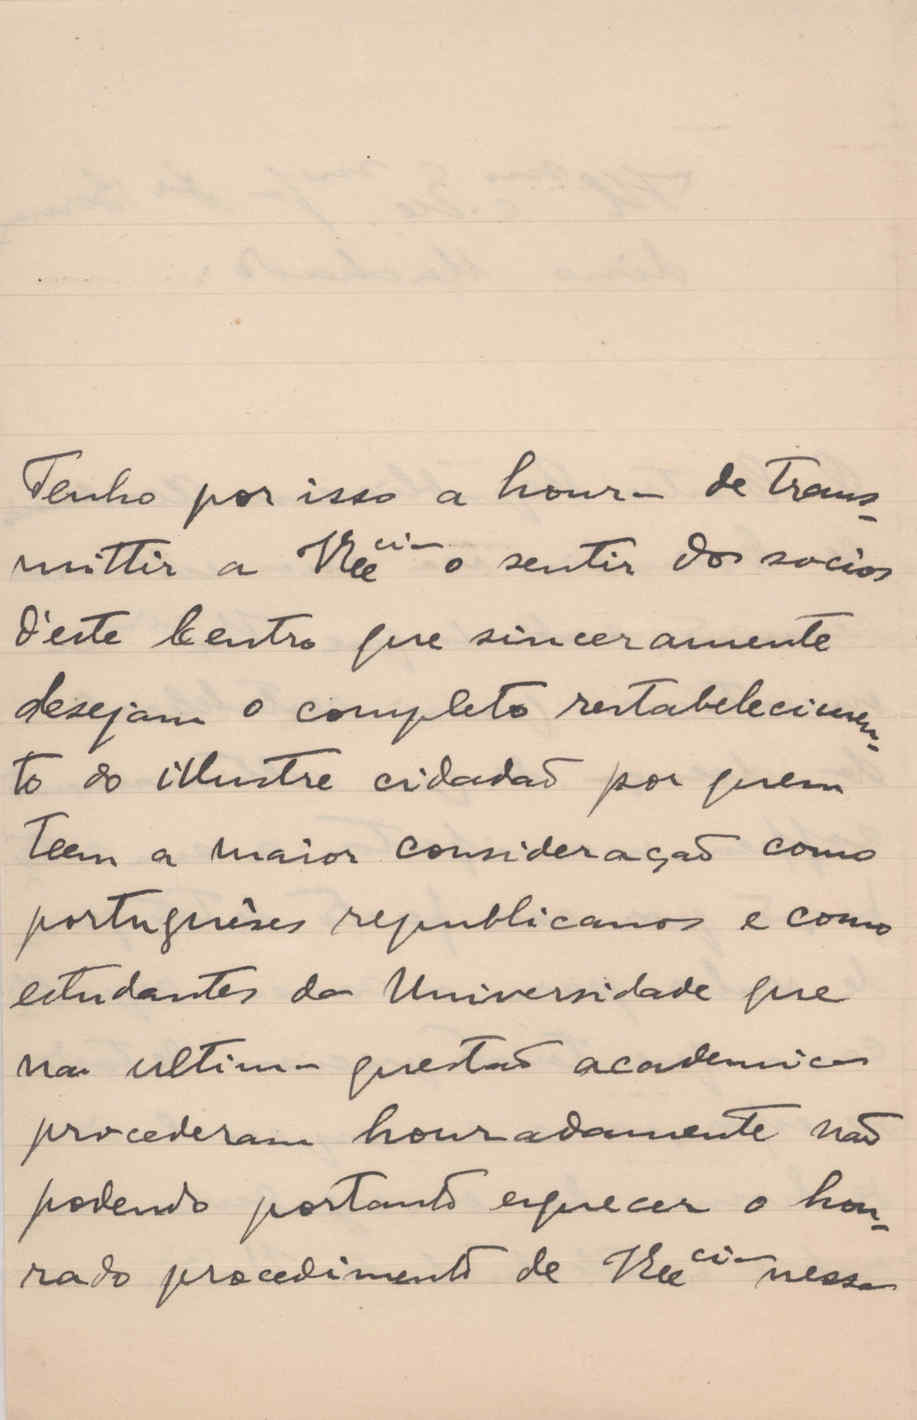 Tenho por isso a honra de trans-
mittir a V. Ex.cia o sentir dos socios
d'este Centro que sinceramente
desejam o completo restabelecimen-
to do illustre cidadaõ por quem
teem a maior consideraçaõ como
portuguêses republicanos e como
estudantes da Universidade que
na ultima questaõ academica
procederam honradamente naõ
podendo portanto esquecer o hon-
rado procedimento de V. Ex.cia nessa